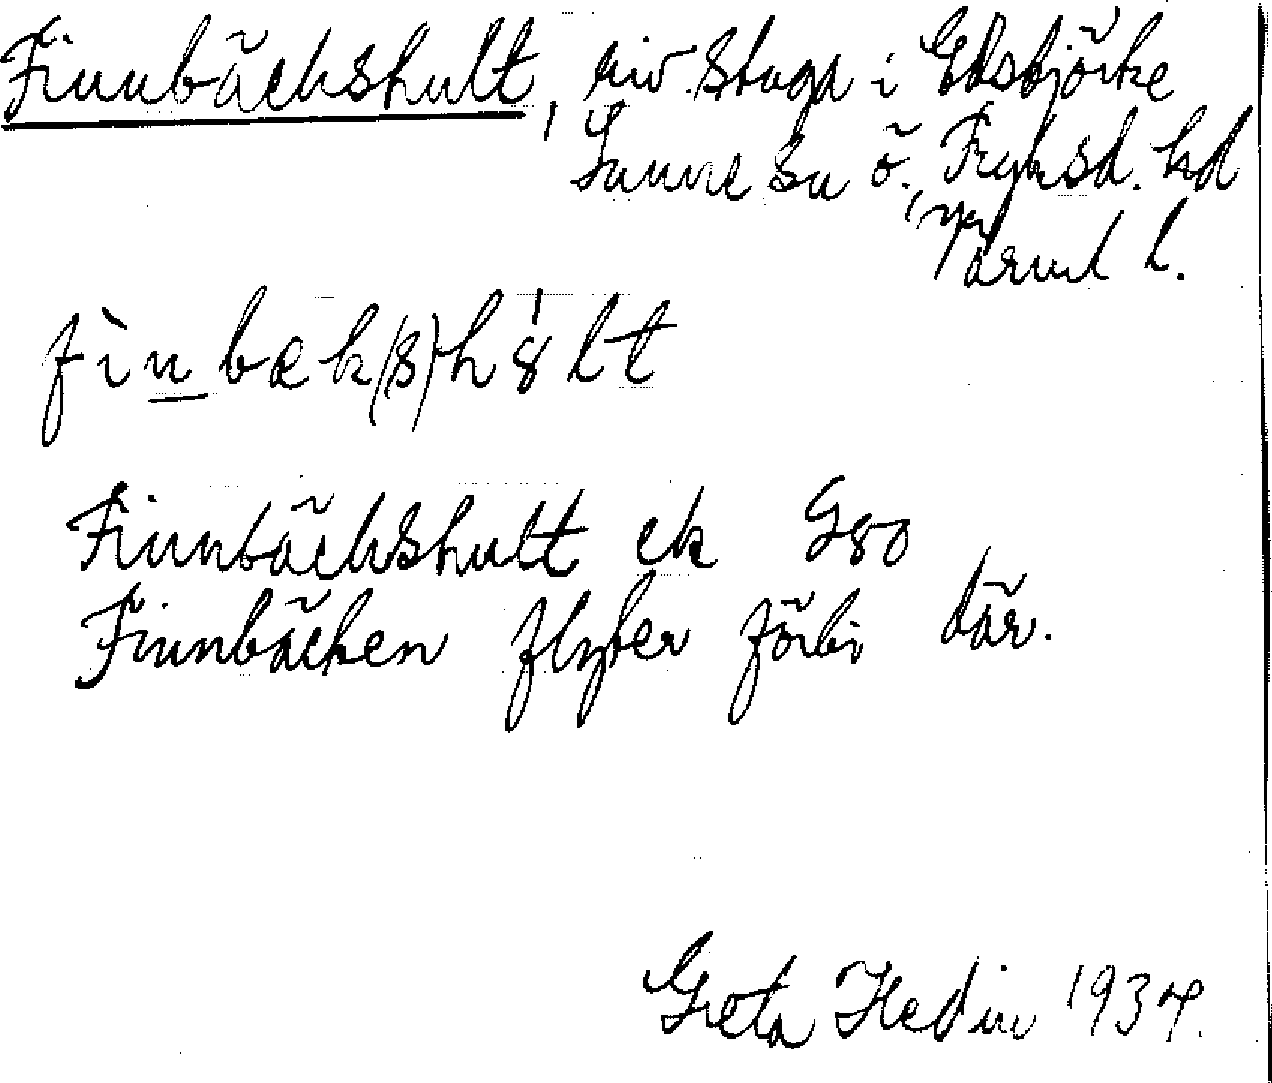 Finnbäckshult, riv. stuga i Edsbjörke
Sunne sn Ö., Fryksd. hd
Värml l.
fìnbæk(s)hɞ́lt
Finnbäckshult ek Gso
Finnbäcken flyter förbi där.
Greta Hedin 1934.